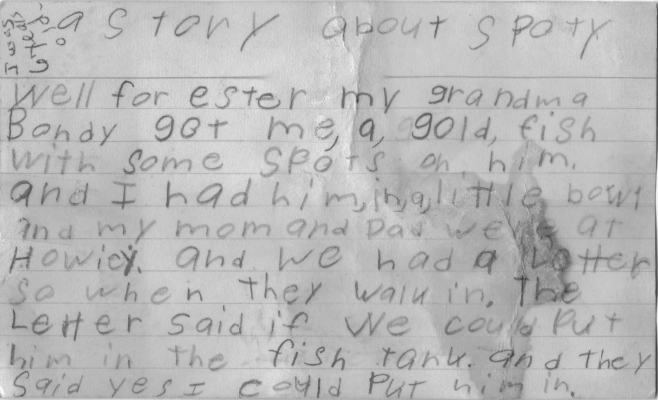 I was 6 years old
a story about spoty
Well for ester my grandma
Bondy got me, a, gold, fish
with some spots on him.
and I had him, in, a, little bowl
and my mom and Dad were at
Howiey. and we had a Letter
so when they walk in. The
Letter said if we could put
him in the fish tank. and they
said yes I could put him in.